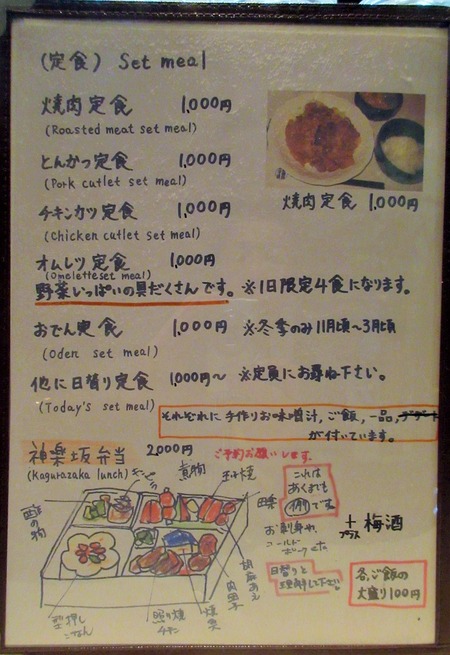 (定食) Set meal
焼肉定食 1,000円
(Roasted meat set meal)
とんかつ定食 1,000円
(Pork cutlet set meal)
チキンカツ定食 1,000円
(Chicken cutlet set meal)
焼肉定食 1,000円
オムレツ定食 1,000円
(Omelette set meal)
野菜いっぱいの具だくさんです。 ※1日限定4食になります。
おでん定食 1,000円 ※冬季のみ11月頃〜3月頃
(Oden set meal)
他に日替り定食 1,000円〜 ※定員にお尋ね下さい。
(Today's set meal)
それぞれに手作りお味噌汁,ご飯,一品,デザート
が付いています。
神楽坂弁当 2,000円 ご予約お願いします。
(Kagurazaka lunch)
きんぴら
煮物
玉子焼
酢の物
これは
あくまでも
例です
お刺身や
コールド
ポークetc
日替りと
理解して下さい。
+
プラス
梅酒
各、ご飯の
大盛り100円
胡麻あえ
肉団子
型押し
ごはん
照り焼
チキン